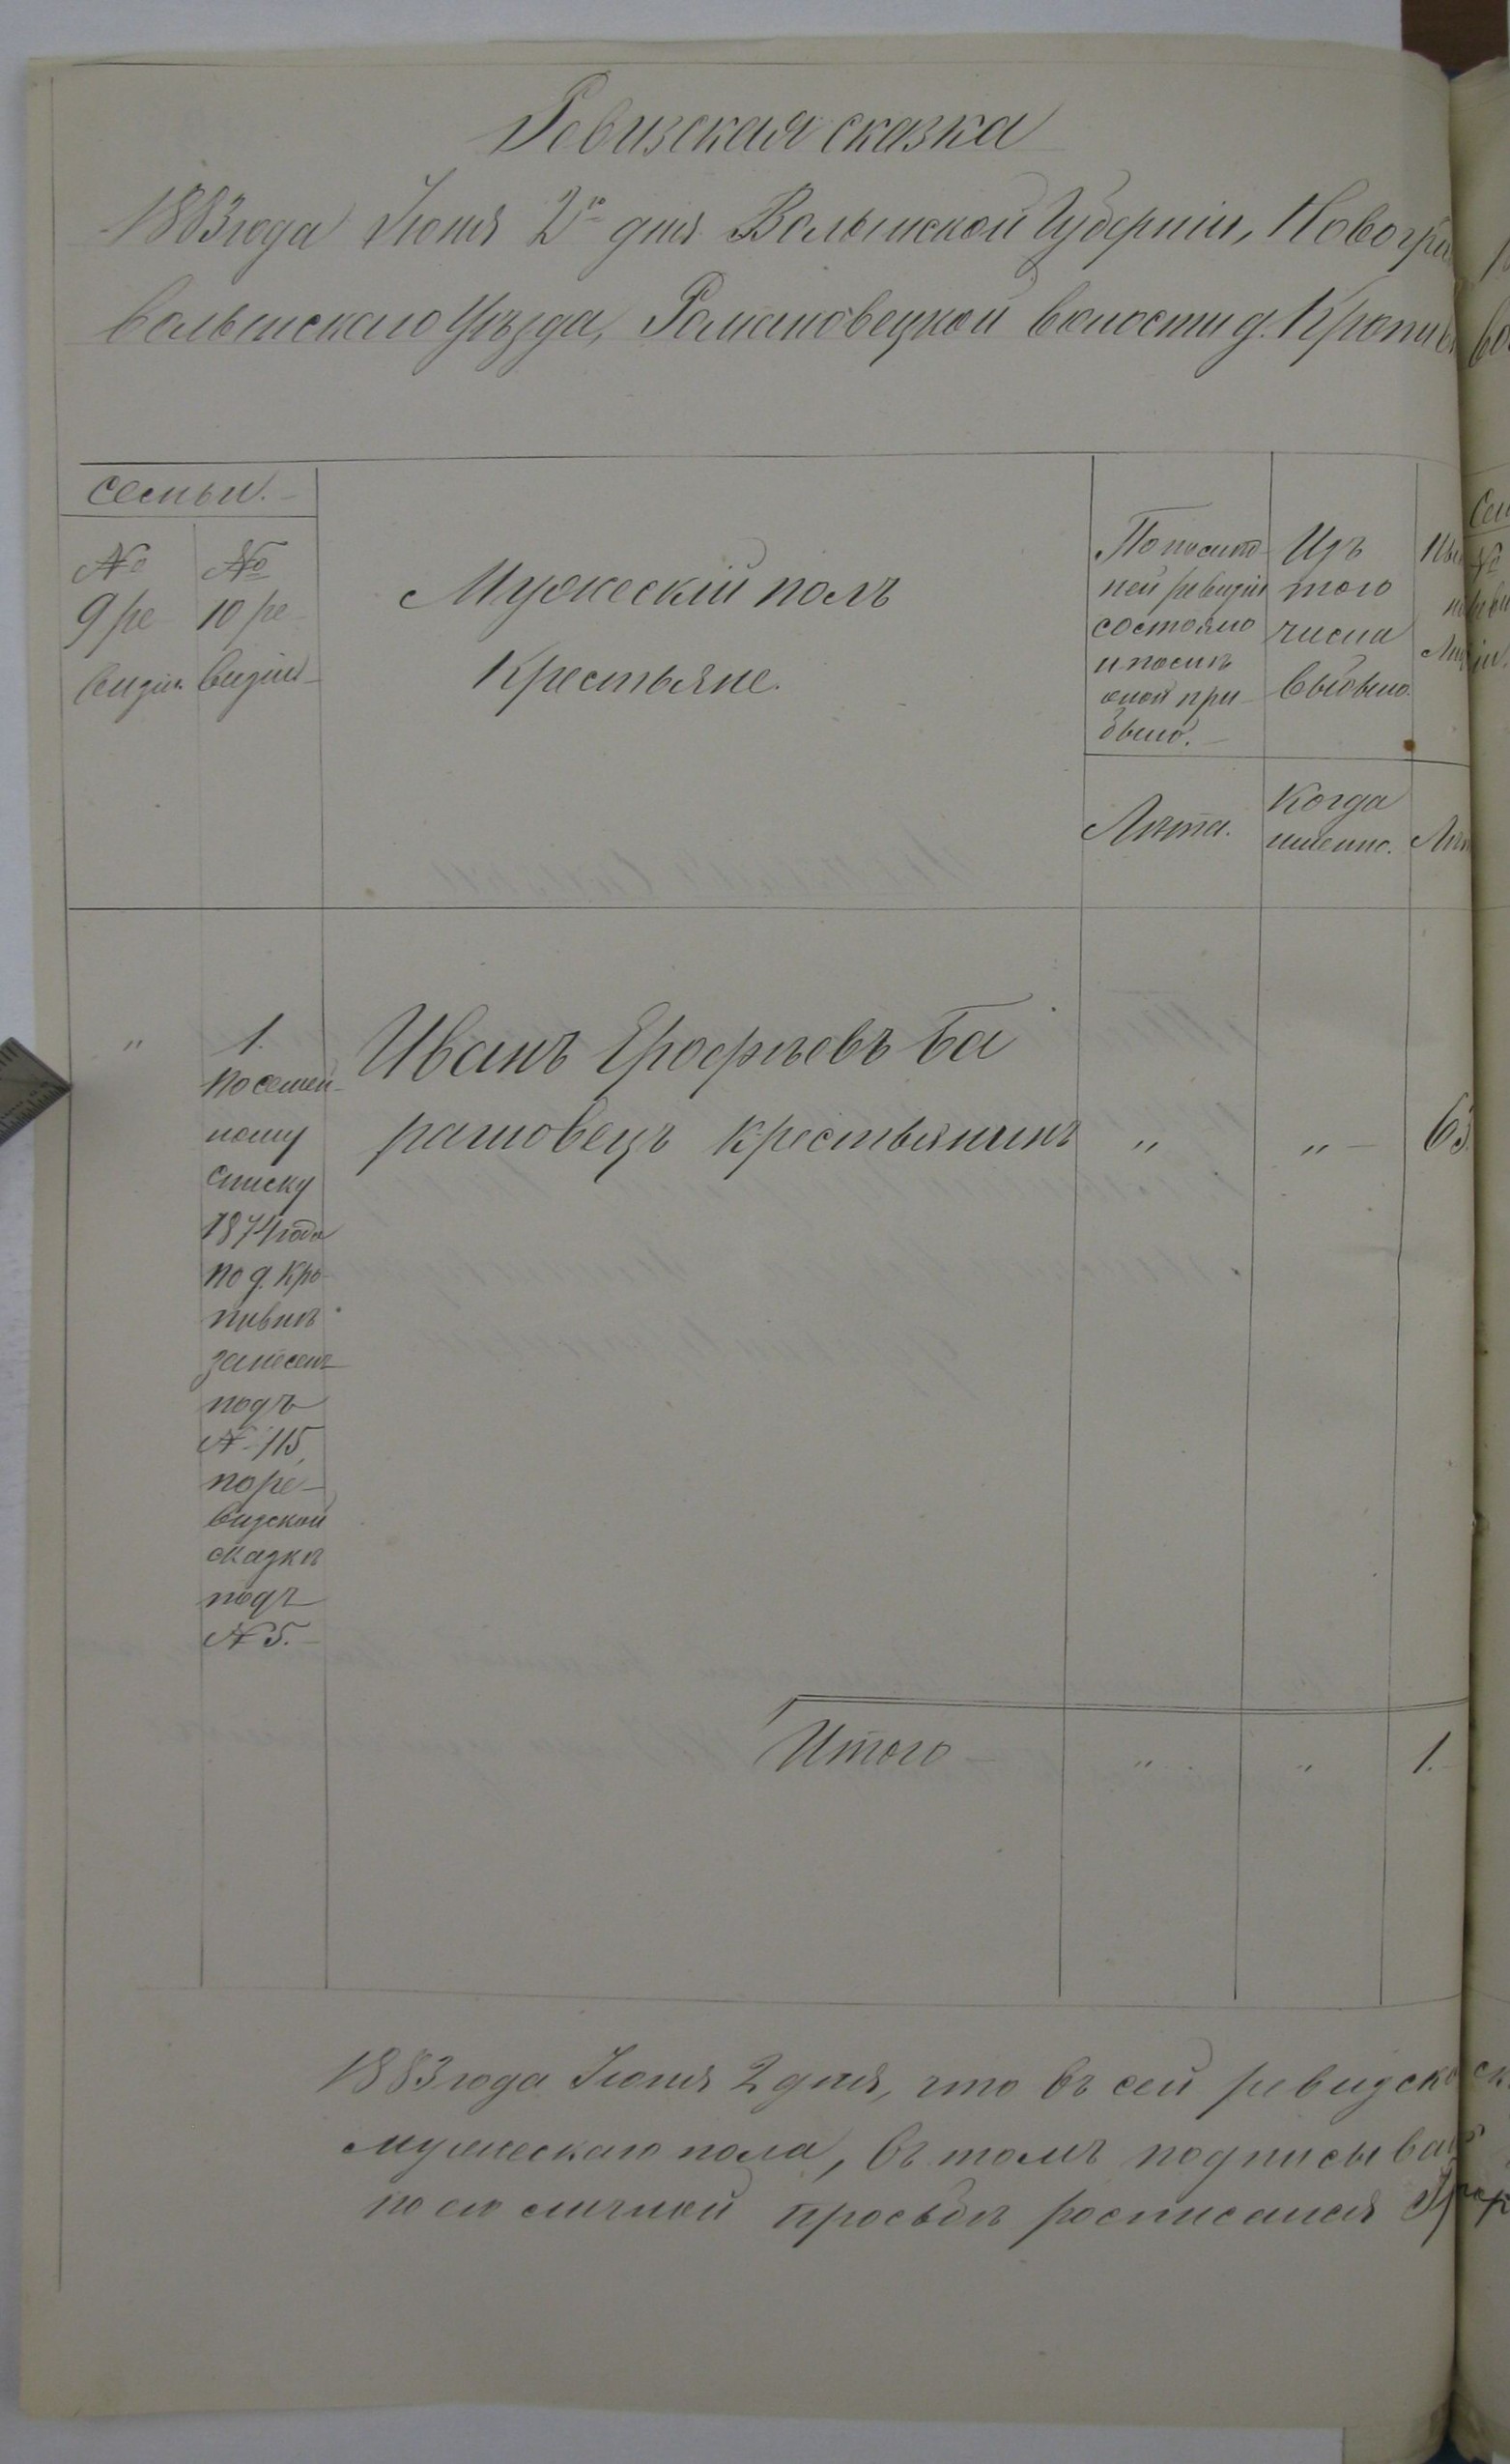 Ревизская сказка
1883 года Іюня 2го дня Волынской Губерніи, Новогра
волынскаго Уѣзда, Романовецкой волости д. Кропив
Семьи.
№ 9 ре
визіи
№ 10 ре
визіи
Мужескій полъ
Крестьяне.
По послѣд
ней ревизіи
состояло
и послѣ
оной при
было.
Лѣта.
Изъ
того
числа
выбыло.
Когда
именно.
"
1.
По семей
ному
списку
1874 года
по д. Кро
пивнѣ
занесенъ
подъ
№ 115,
по ре
визской
сказкѣ
подъ
№ 5.
Иванъ Ерофѣевъ Ба
рановецъ крестьянинъ " " 63
Итого " " 1.
1883 года Іюня 2 дня, что въ сей ревизско
мужескаго пола, въ томъ подписыва
по его личной просьбѣ росписался